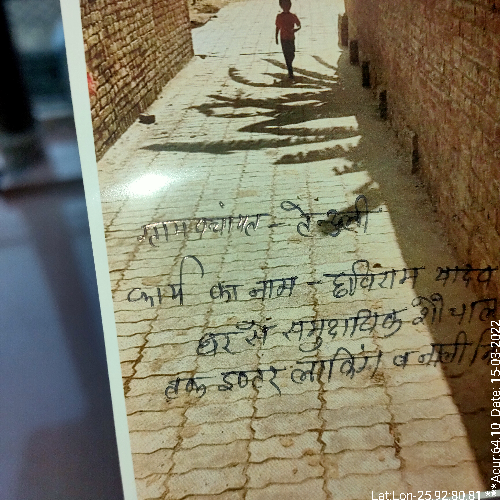 ग्राम पंचायत - टेऊली
कार्य का नाम - छविराम यादव
घर से समुदायिक शौचाल
तक इण्टर लाकिंग व नाली नि
Lat Lon-25.92,80.81 **Acur:64.10 Date: 15-03-2022